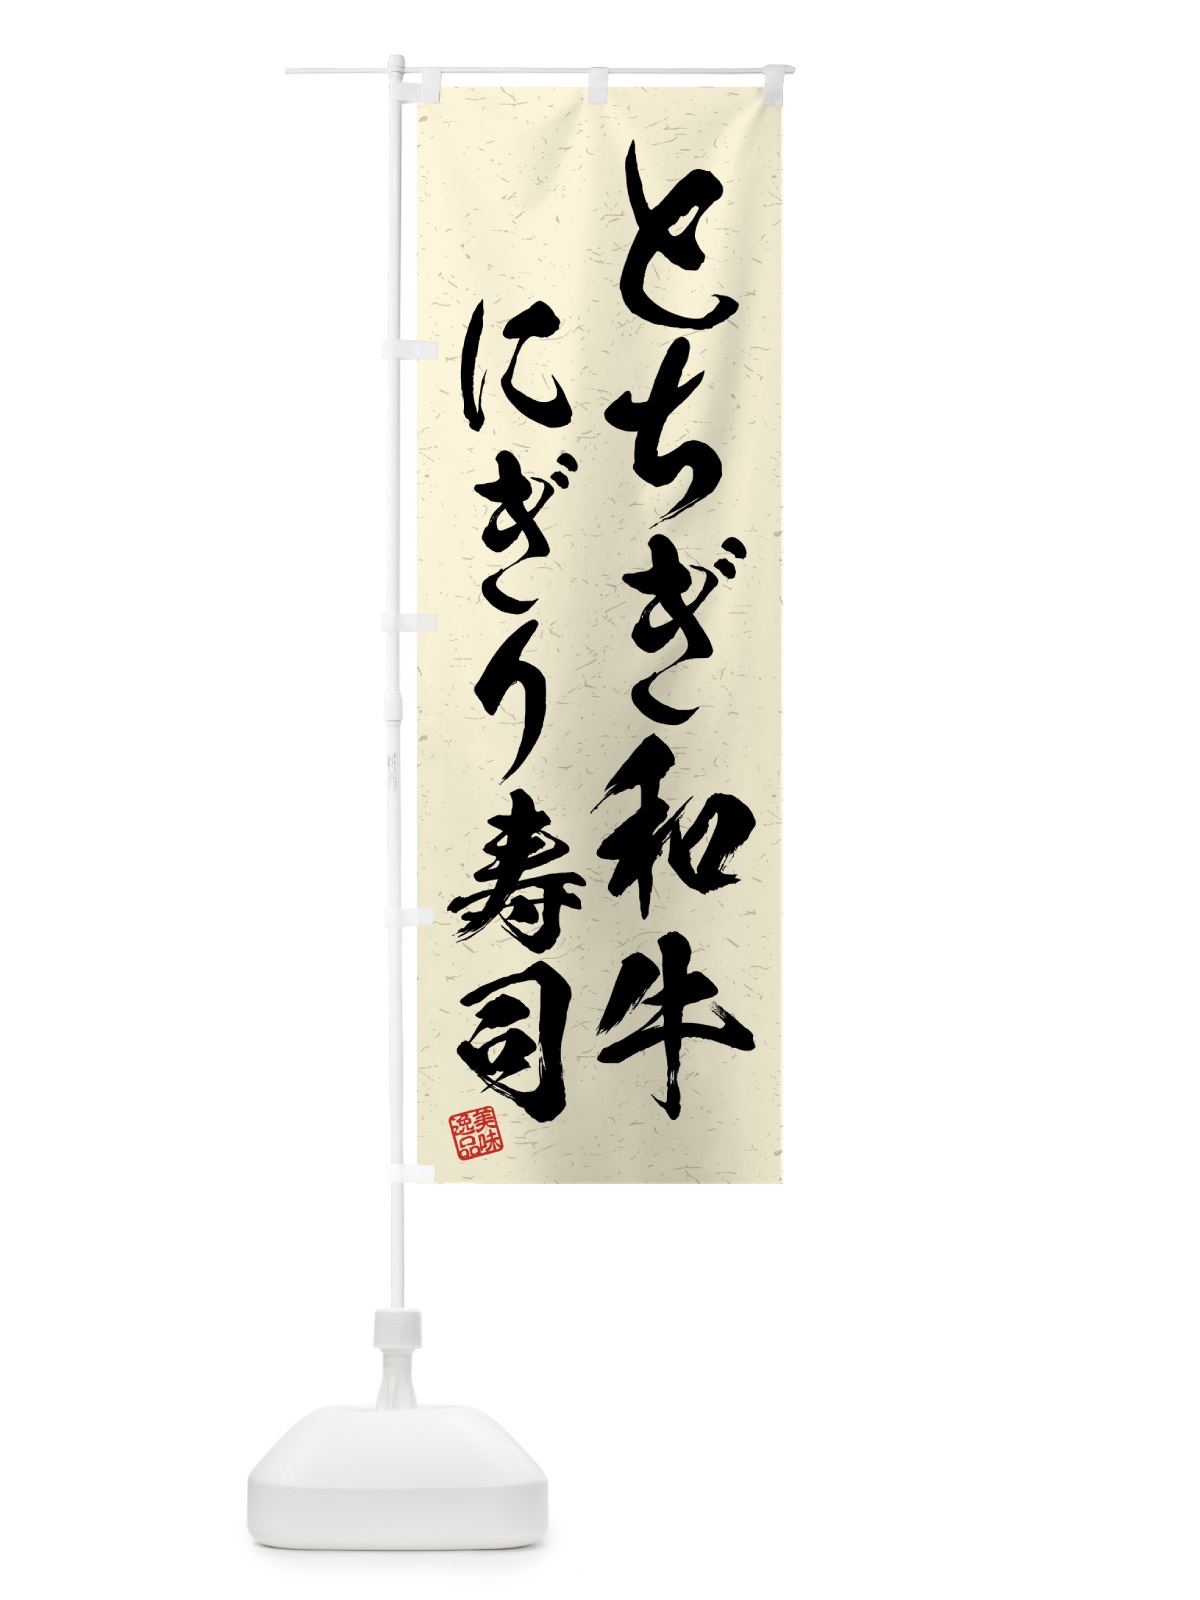 とちぎ和牛
にぎり寿司
美味
逸品